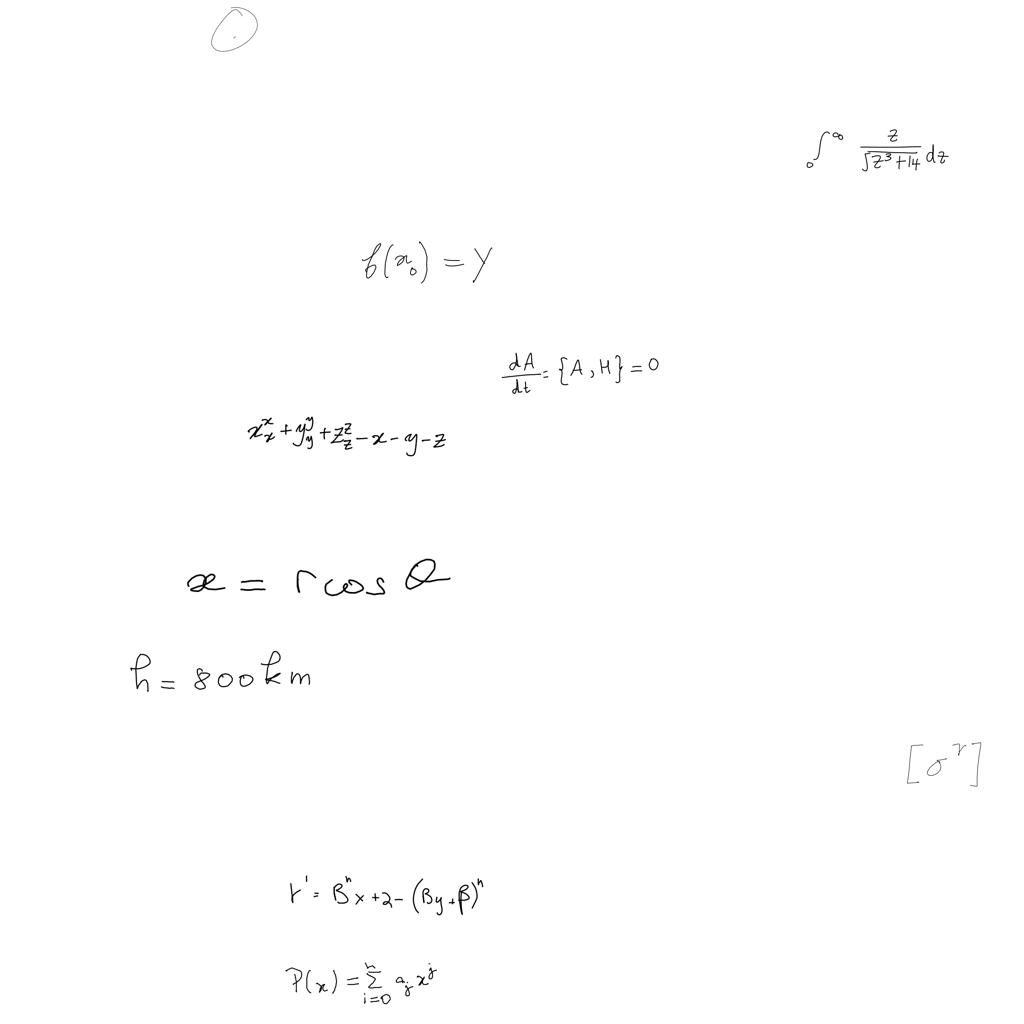 ⊙
\int_0^\infty \frac{z}{\sqrt{z^3+14}} dz
f(x_0) = y
\frac{dA}{dt} = \{A, H\} = 0
x_x^x + y_y^y + z_z^z - x - y - z
x = r cos θ
h = 800 km
[σ^r]
r' = B^n x + 2 - (By + β)^n
P(x) = \sum_{i=0}^n a_j x^j